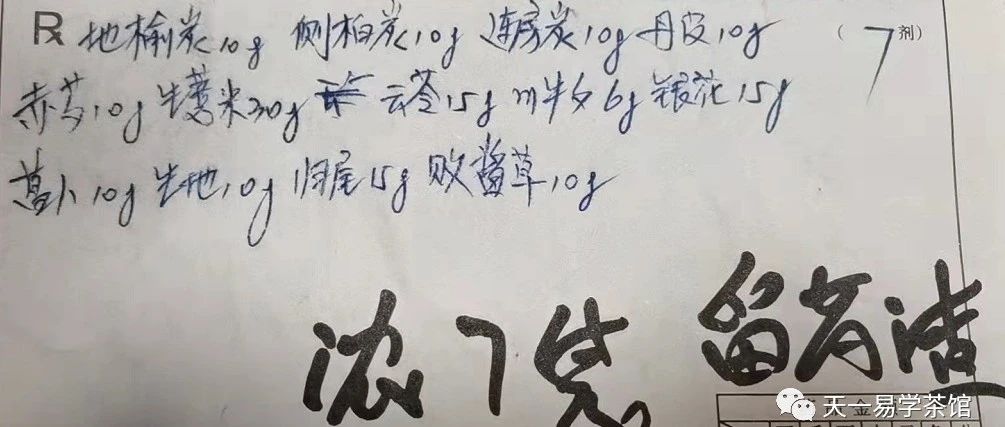 Rx 地榆炭10g 侧柏炭10g 莲房炭10g 丹皮10g （7剂）
赤芍10g 生薏米30g 云苓15g 川牛夕6g 银花15g
10g 生地10g 归尾15g 败酱草10g
浓7煎 留方渣
天一易学茶馆
金